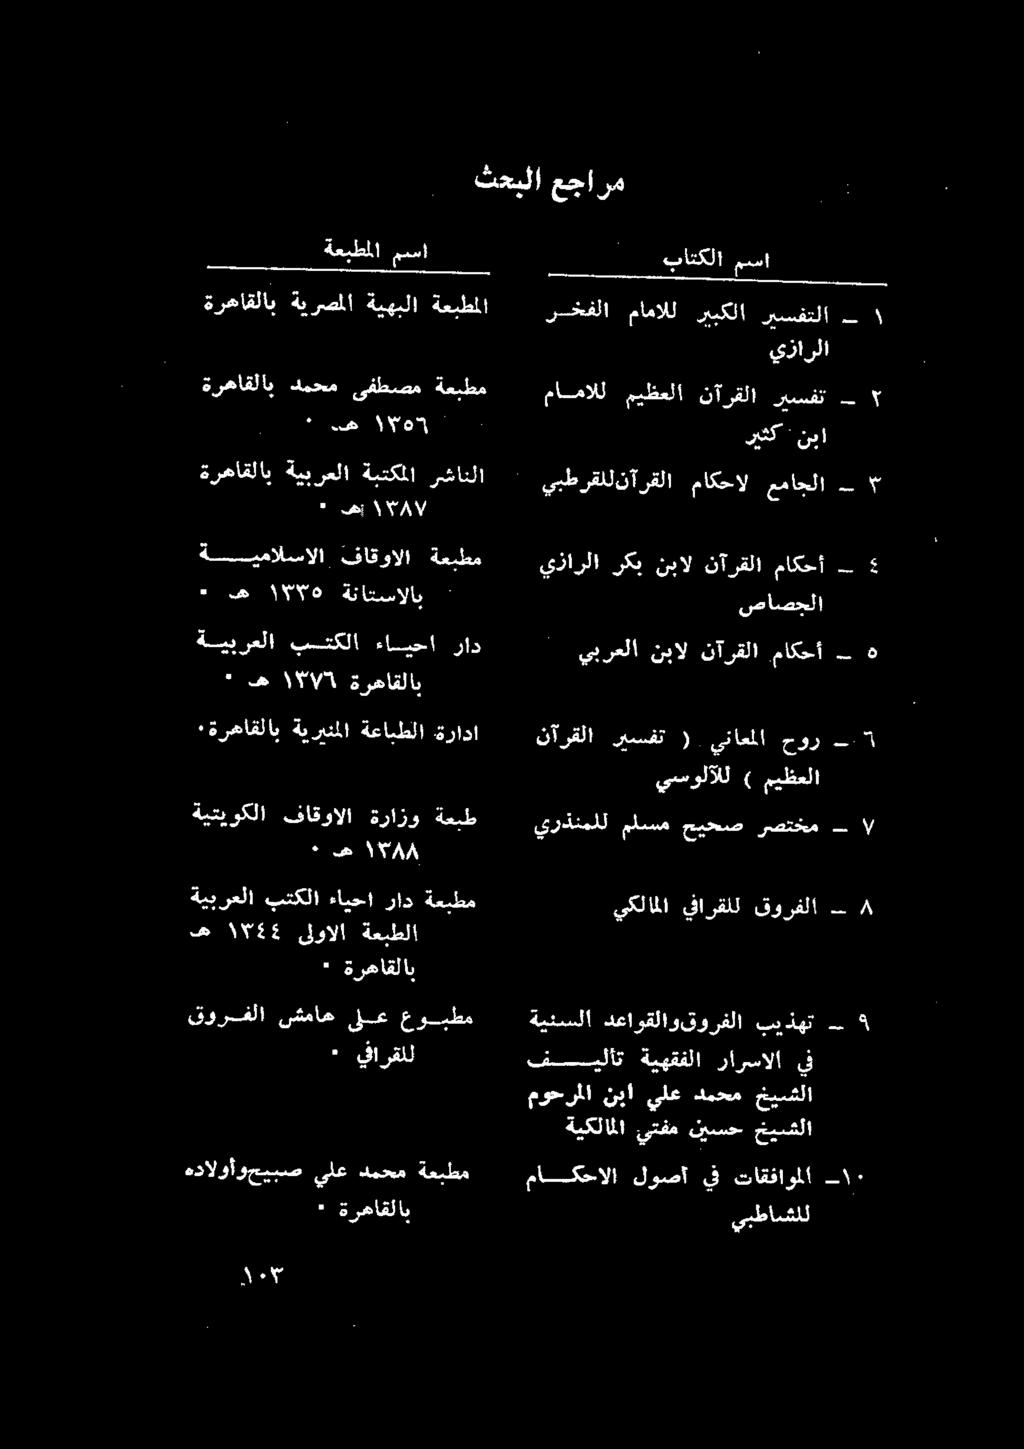 مراجع البحث
اسم الكتاب اسم المطبعة
١ ـ التفسير الكبير للامام الفخـر المطبعة البهية المصرية بالقاهرة
الرازي
٢ ـ تفسير القرآن العظيم للامـام مطبعة مصطفى محمد بالقاهرة
ابن كثير ١٣٥٦ هـ ٠
٣ ـ الجامع لاحكام القرآن للقرطبي الناشر المكتبة العربية بالقاهرة
١٣٨٧ هـ ٠
٤ ـ أحكام القرآن لابن بكر الرازي مطبعة الاوقاف الاسلاميـــة
الجصاص بالاستانة ١٣٣٥ هـ ٠
٥ ـ أحكام القرآن لابن العربي دار احيـاء الكتـب العربيـة
بالقاهرة ١٣٧٦ هـ ٠
٦ ـ روح المعاني ( تفسير القرآن ادارة الطباعة المنيرية بالقاهرة٠
العظيم ) للآلوسي
٧ ـ مختصر صحيح مسلم للمنذري طبعة وزارة الاوقاف الكويتية
١٣٨٨ هـ ٠
٨ ـ الفروق للقرافي المالكي مطبعة دار احياء الكتب العربية
الطبعة الاولى ١٣٤٤ هـ
بالقاهرة ٠
٩ ـ تهذيب الفروق والقواعد السنية مطبـوع عـلى هامش الفـروق
في الاسرار الفقهية تأليـــف للقرافي ٠
الشيخ محمد علي ابن المرحوم
الشيخ حسين مفتي المالكية
١٠ـ الموافقات في أصول الاحكـــام مطبعة محمد علي صبيح وأولاده
للشاطبي بالقاهرة ٠
١٠٣